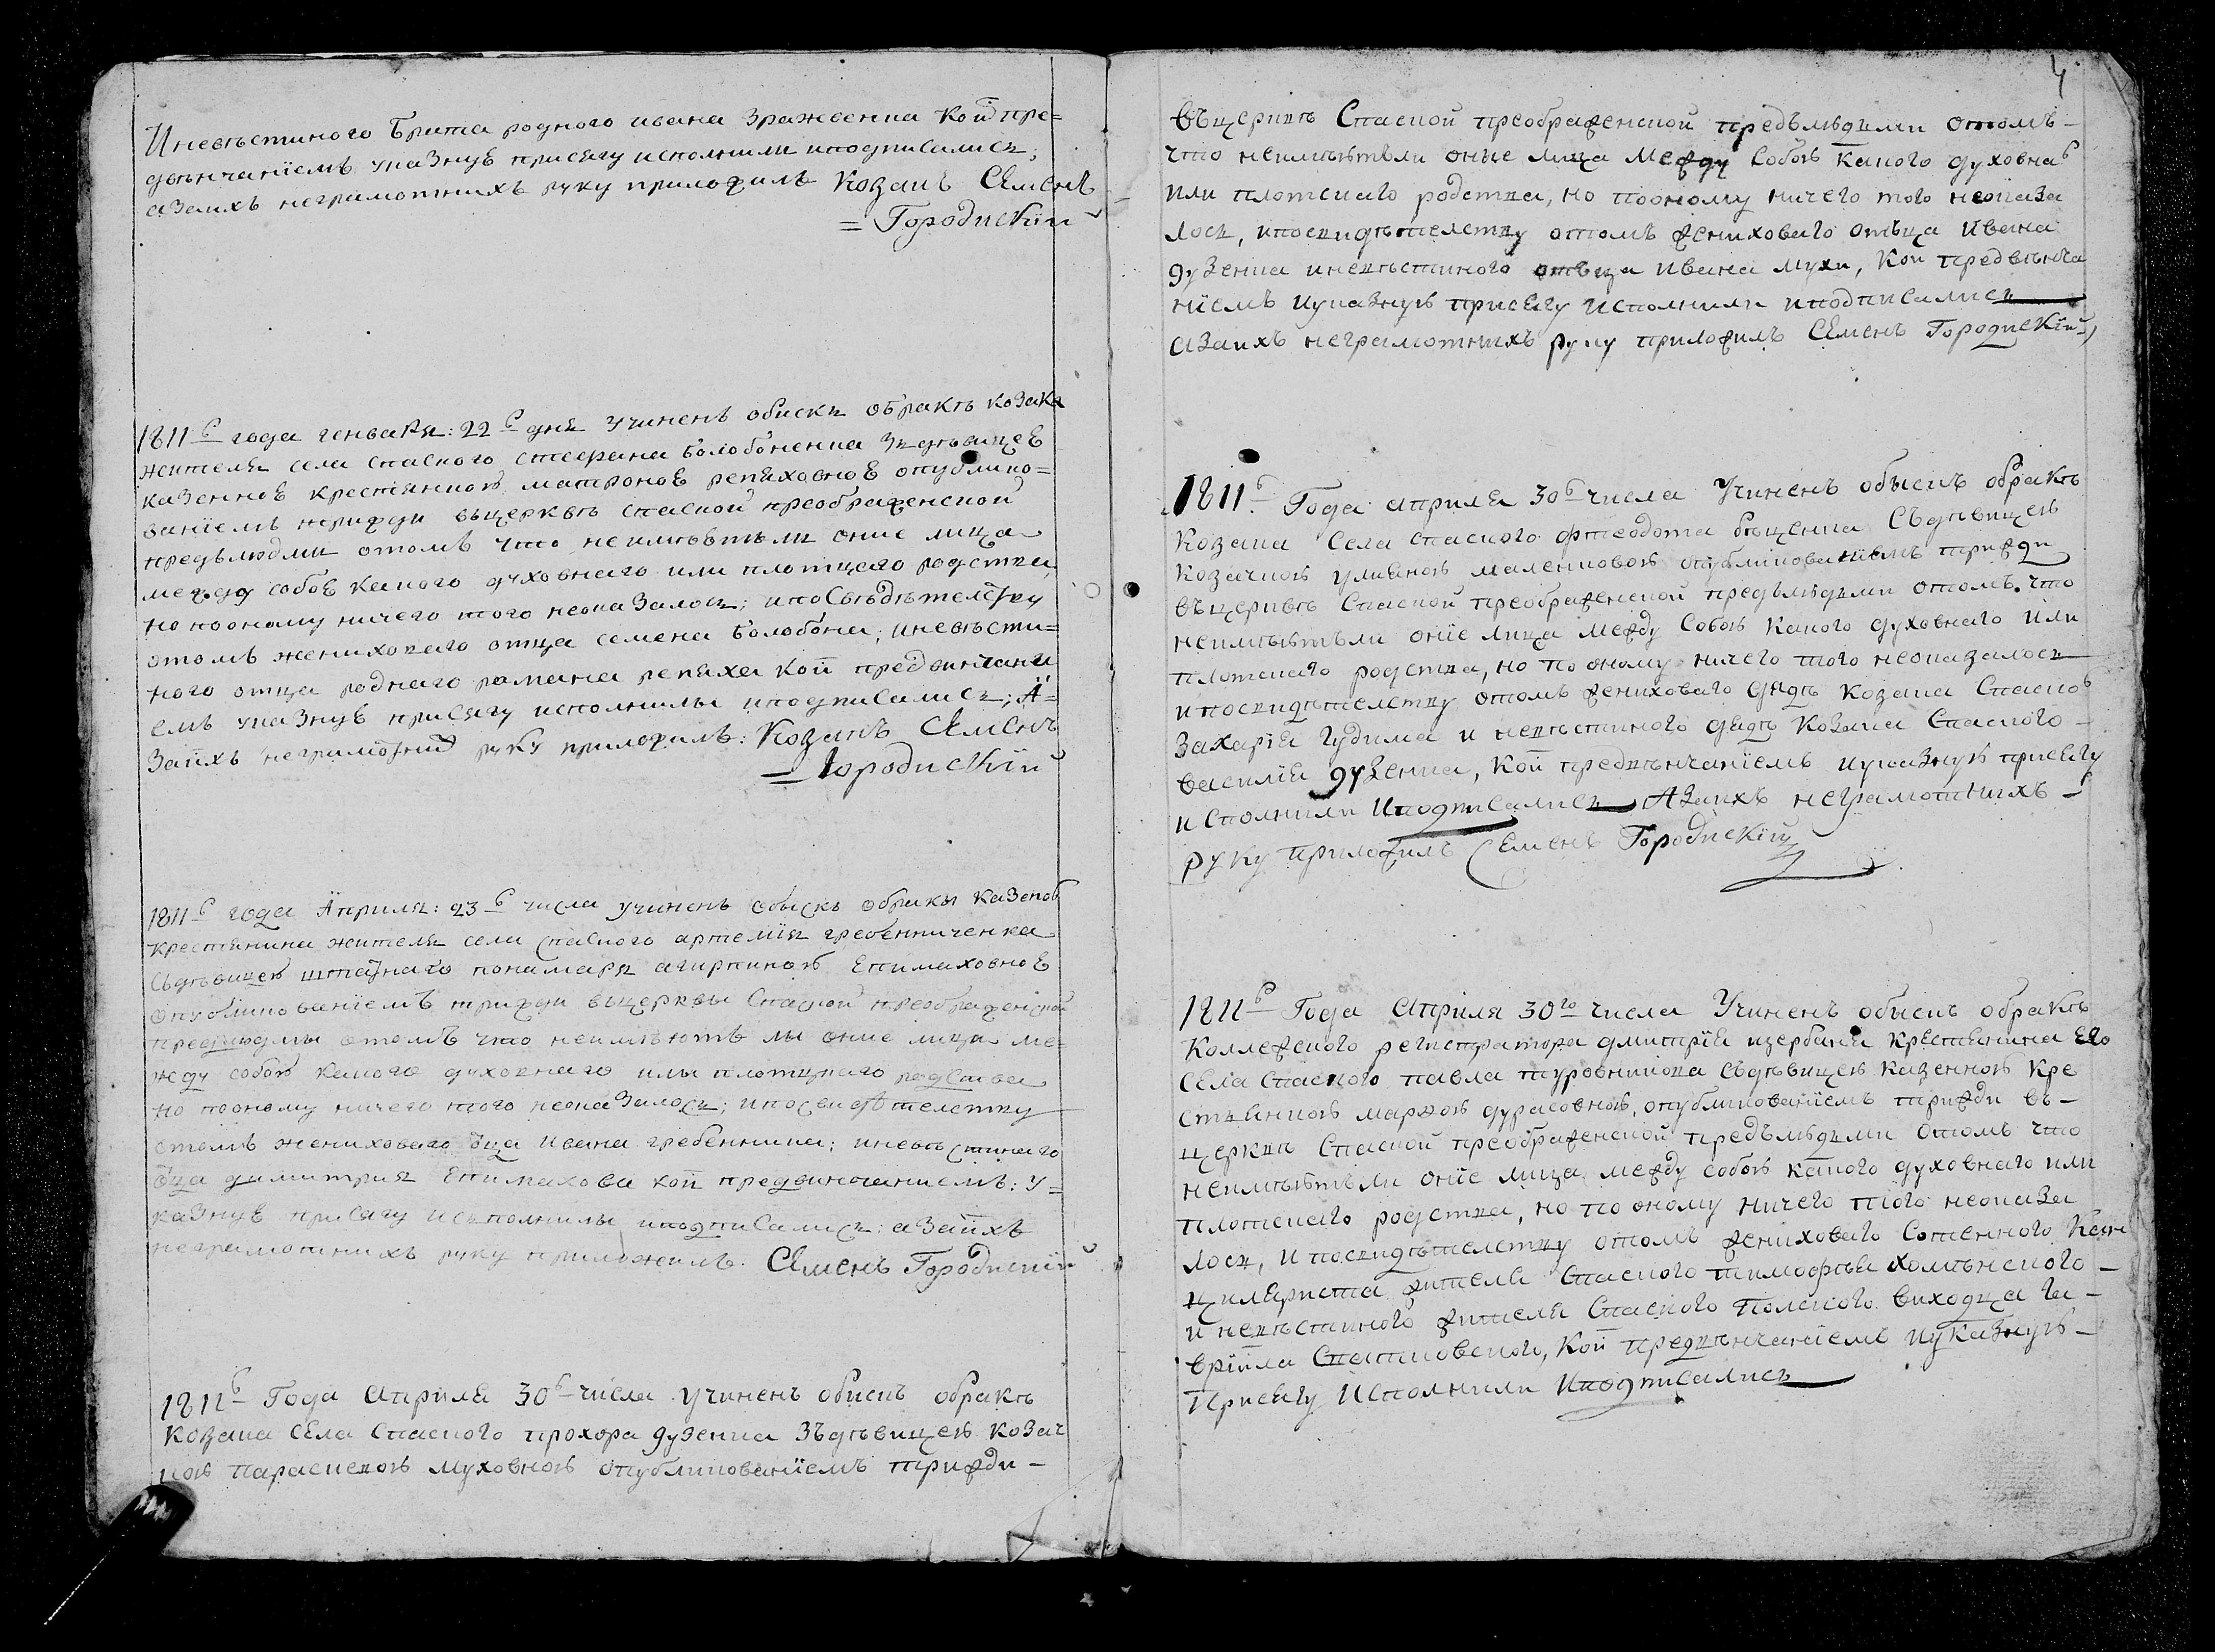 Иневѣстиного брата родного ивана Зражевска Кой пре=
двѣнчаніемъ указнуѣ присягу исполнили иподписались;
азаихъ неграмотнихъ руку приложилъ Козакъ Семенъ
= Городискій
1811го года генваря: 22го дня Учиненъ обискъ обракѣ козака
жителя села спаского стефана болобоненка Здѣвицеѣ
казенноѣ крестянкоѣ матроноѣ репяховноѣ опублико=
ваніемъ трижди вьцерквѣ спаской преображенской
предълюдми отомъ что неимѣютъли оние лица
между собоѣ какого духовнаго или плотцкого родства
но пооному ничего того неоказалось; ипосвѣдѣтелству
отомъ жениховаго отца семена болобона; иневѣсти=
ного отца роднаго рамана репяха кои предвинчани
емъ указнуѣ присягу исполнилы иподписались; А=
Заихъ неграмотних руку приложилъ: Козакъ Семенъ
= Городискій
1811го года Априля: 23го числа учиненъ обыскъ обракы казеног
крестянина жителя села спаского артемія гребенниченка
сьдѣвицеѣ штатнаго понамаря агирпиноѣ Епимаховноѣ
опубликованіемъ трижди вьцерквы Спаской преображенской
предлюдмы отомъ что неимѣютъ лы оние лица ме=
жду собоѣ какого духовнаго илы плотцкаго родства
но пооному ничего того неоказалось; ипосвидѣтелству
отомъ жениховаго оца Ивана гребенника; иневѣстинаго
оца димитрия Епимахова кои предвинчаниемъ: у=
казнуѣ присягу исьполнилы иподписались: азаихъ
неграмотнихъ руку приложилъ. Семенъ Городискій
1811го Года Априля 30го числа учиненъ обискъ обракѣ
Козака Села Спаского прохора дузенка Зъдѣвицеѣ козач
коѣ параскевоѣ муховноѣ опубликованіемъ трижди –
4
въцерквѣ Спаской преображенской предълюдми отомъ –
что неимѣютъли оные лица между собоѣ какого духовнаго
или плотскаго родства, но пооному ничего того неоказа
лось, ипосвидѣтелству отомъ жениховаго отъца Ивана
дузенка иневѣстиного отъца Ивана мухи, Кои предвѣнча
ніемъ иуказнуѣ присягу исполнили иподписались
азаихъ неграмотнихъ руку приложилъ Семенъ Городискій
1811го Года априля 30го числа Учиненъ обыскъ обракѣ
Козака Села спаского фтеодота бъценка Съдѣвицеѣ
козачкоѣ улияноѣ маленковоѣ опубликованіемъ трижди
въцерквѣ Спаской преображенской предълюдми отомъ что
неимѣютъли оніе лица между собоѣ какого духовнаго или
плотскаго родства, но по оному ничего того неоказалось
ипосвидѣтелству отомъ жениховаго дядѣ козака Спаского
Захарія гудима и невѣстиного дядѣ козака Спаского –
василія дузенка, Кои предвѣнчаніемъ иуказнуѣ присягу
исполнили иподписались Азаихъ неграмотнихъ –
руку приложилъ Семенъ Городискій
1811го Года Апріля 30го числа Учиненъ обискъ обракѣ
Коллежского регистратора дмитрія щербака крестянина Его
Села Спаского павла туровникова съдѣвицеѣ казенноѣ кре
стянкоѣ марѳоѣ дурасовноѣ, опубликованіемъ трижди въ –
церквѣ Спаской преображенской предълюдми отомъ что
неимѣютъли оніе лица между собоѣ какого духовнаго или
плотскаго родства, но по оному ничего того неоказа
лось, ипосвидѣтелству отомъ жениховаго Сотенного Кан
цыляриста жителя Спаского тимофѣя хомѣнского –
и невѣстиного жителя Спаского полского виходца га –
вріила Спатковского, Кои предвѣнчаніемъ иуказнуѣ –
Присягу исполнили иподписались